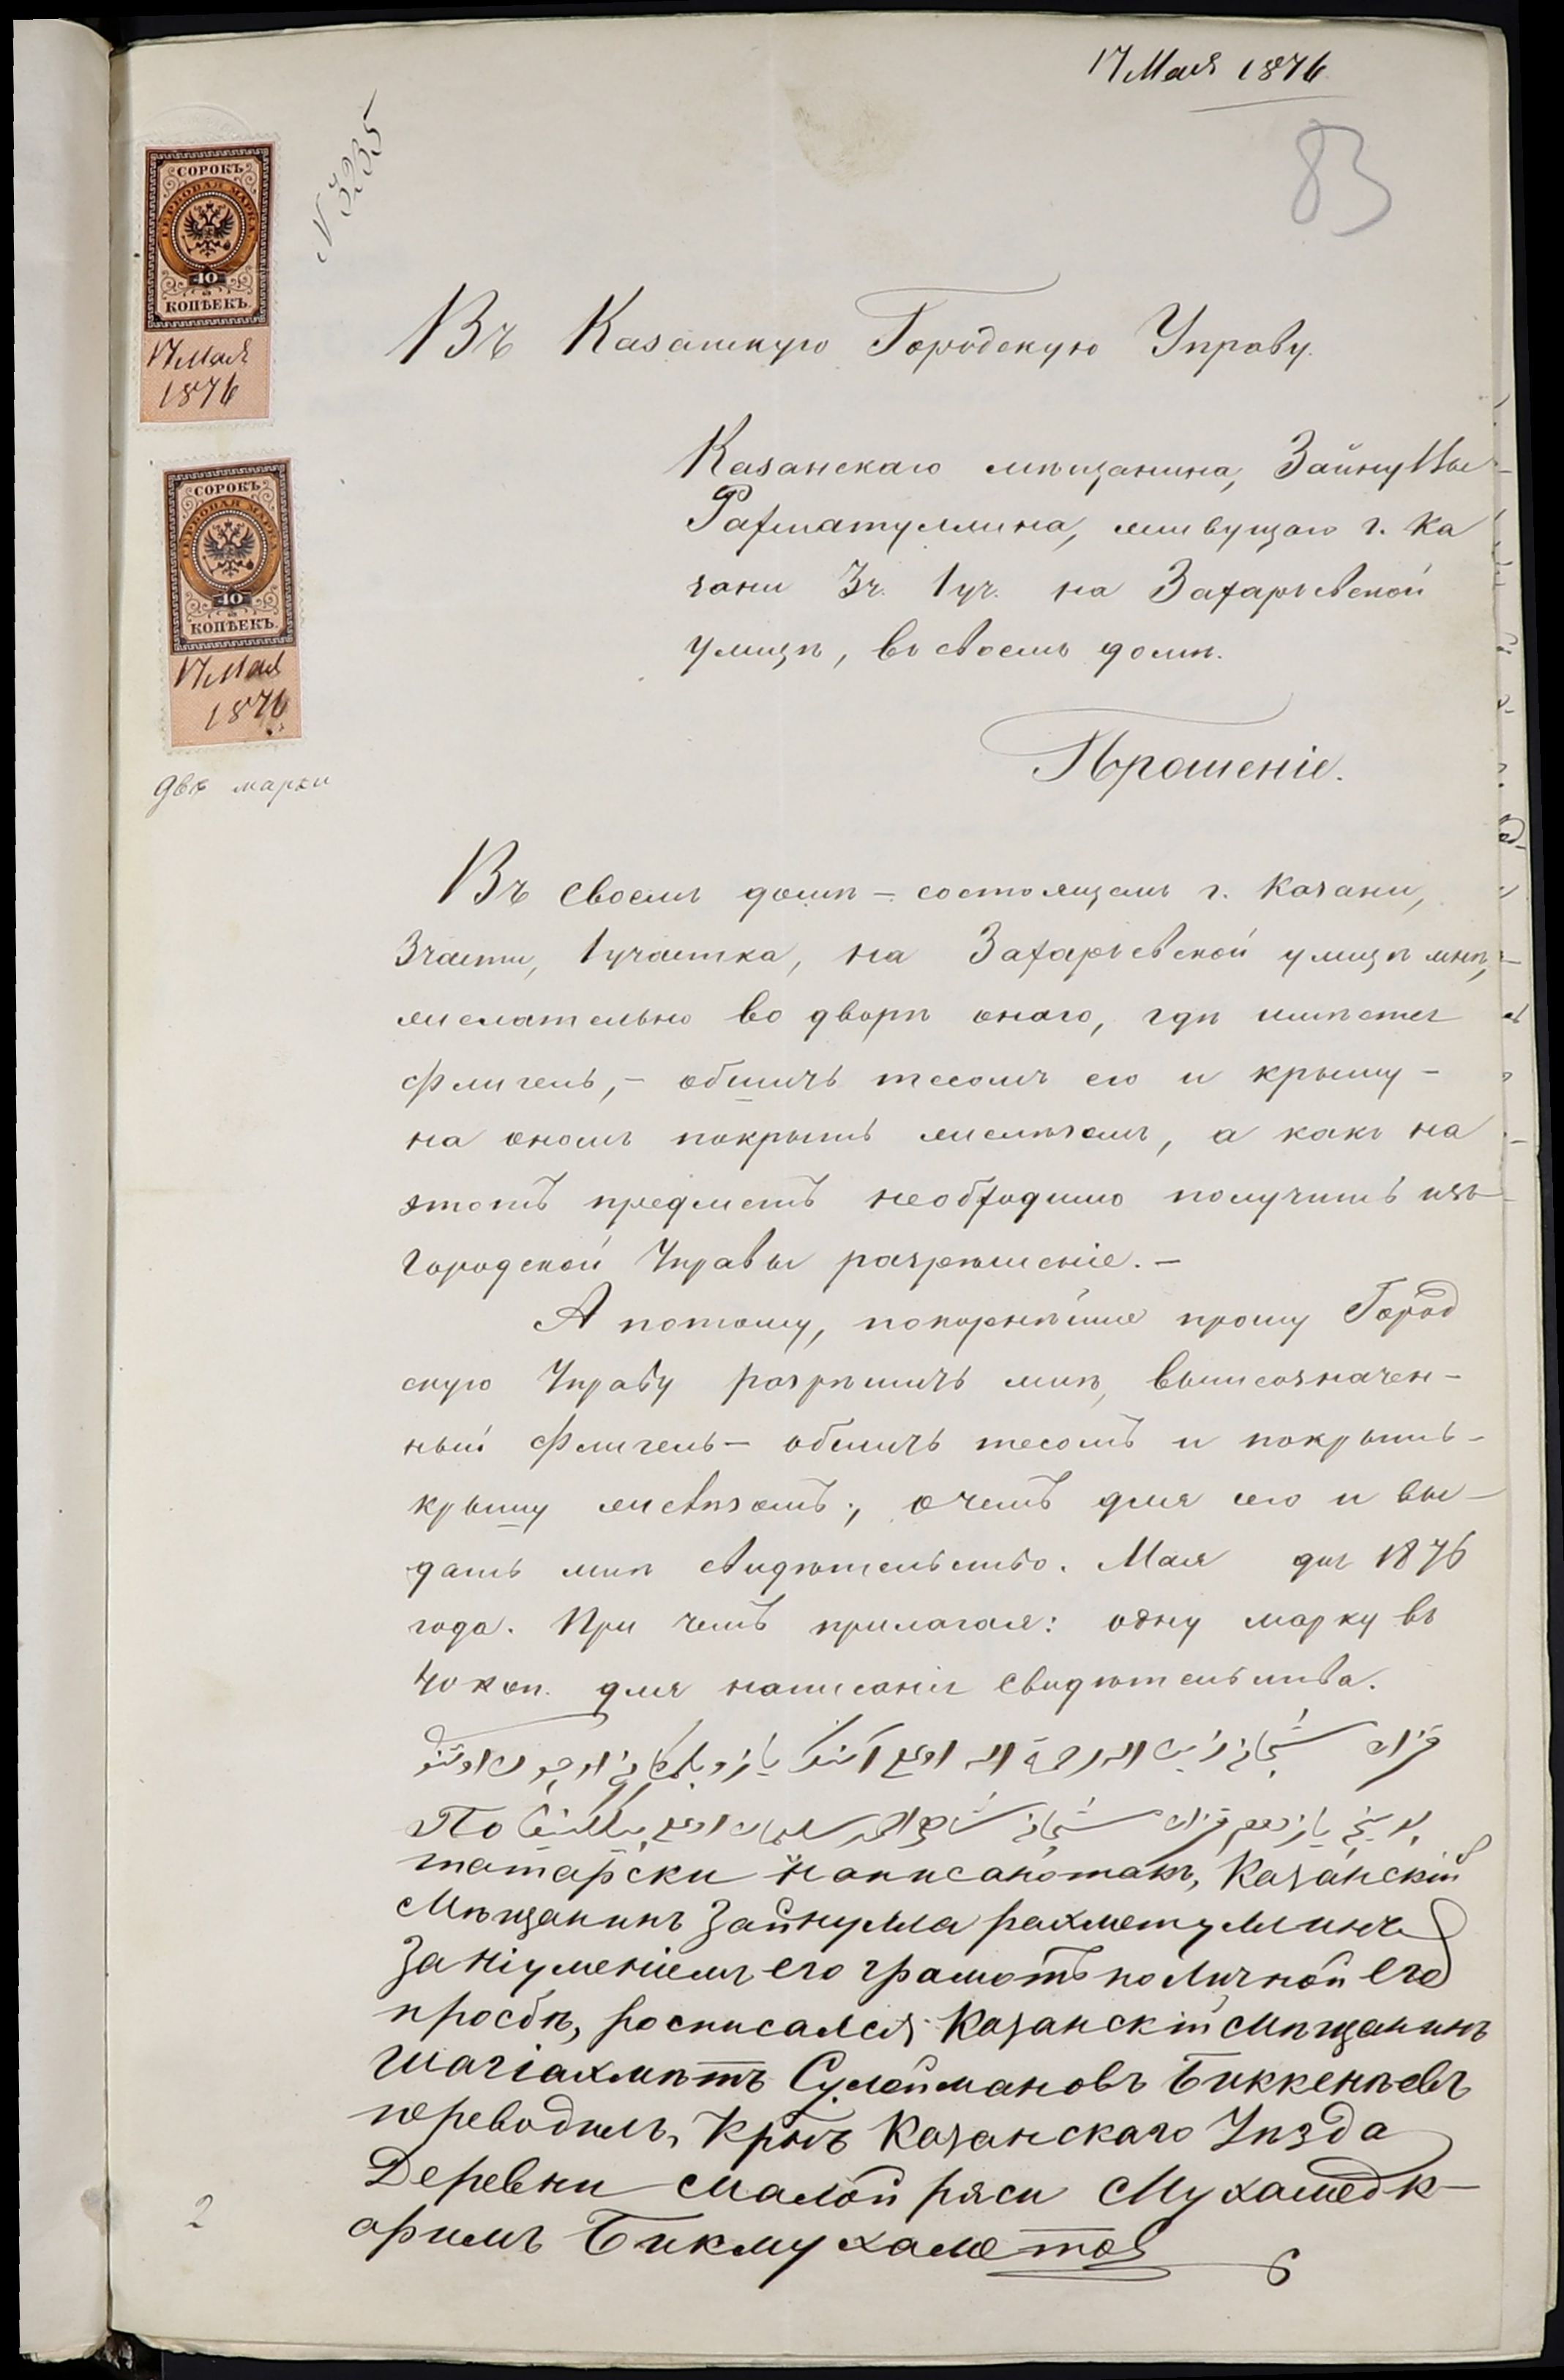 17 Мая 1876
83
N 3235
СОРОКЪ
ГЕРБОВАЯ МАРКА
40
КОПѢЕКЪ.
17 Мая
1876
СОРОКЪ
ГЕРБОВАЯ МАРКА
40
КОПѢЕКЪ.
17 Мая
1876
двѣ марки
Въ Казанскую Городскую Управу.
Казанскаго мѣщанина, Зайнуллы
Рахматуллина, живущаго г. Ка
зани 3 ч. 1 уч. на Захарьевской
улицѣ, въ своемъ домѣ.
Прошеніе.
Въ своемъ домѣ – состоящемъ г. Казани,
3 части, 1 участка, на Захарьевской улицѣ мнѣ,
желательно во дворѣ онаго, гдѣ имѣется
флигель, – обшить тесомъ его и крышу –
на ономъ покрыть желѣзомъ, а какъ на
этотъ предметъ необходимо получить изъ
Городской Управы разрѣшеніе. –
А потому, покорнѣйше прошу Город
скую Управу разрѣшить мнѣ, вышеозначен–
ный флигель – обшить тесомъ и покрыть –
крышу желѣзомъ; о чемъ для сего и вы–
дать мнѣ свидѣтельство. Мая дня 1876
года. При чемъ прилагая: одну марку въ
40 коп. для написанія свидѣтельства.
قزان
قزان
По
татарски написано такъ, Казанскій
Мѣщанинъ Зайнулла рахметуллинъ
За неуменіемъ его грамотъ по личной его
просбѣ, росписался Казанскій мѣщанинъ
Шагіахмѣтъ Сулеймановъ Биккенѣевъ
переводилъ, Крнъ Казанскаго Уѣзда
Деревни малой ряси Мухамедк–
аримъ Бикмухаметов
2